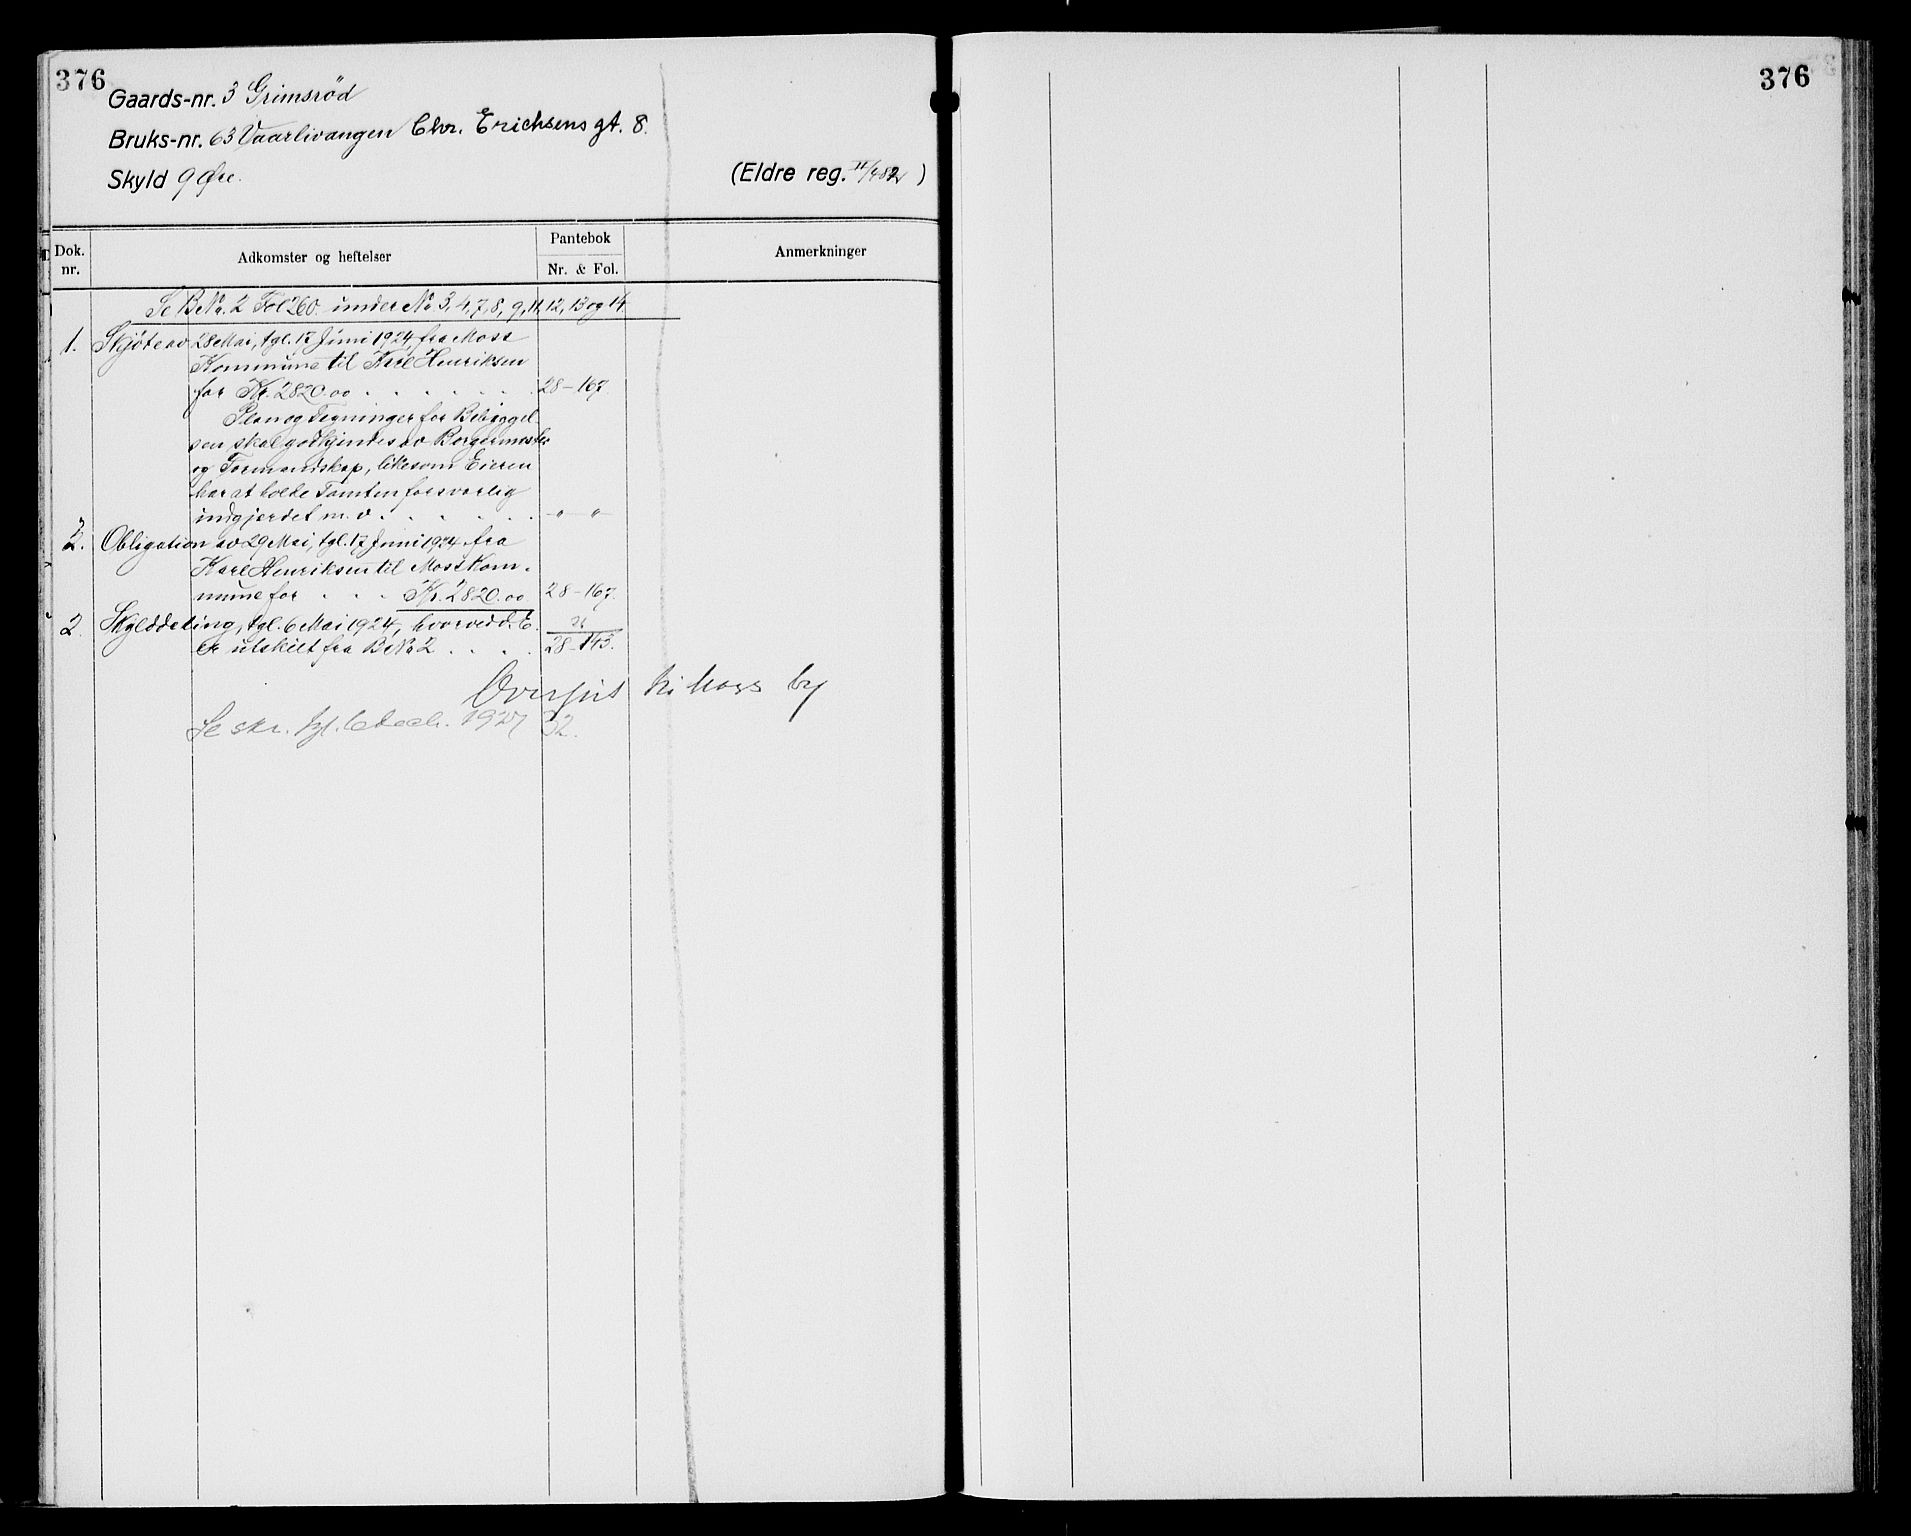 376
Gaards-nr. 3 Grimsrød
Bruks-nr. 63 Vaarlivangen Chr. Erichsens gt. 8.
Skyld 9 Øre.
(Eldre reg. )
Dok. nr.
Adkomster og heftelser
Pantebok
Nr. & Fol.
Anmerkninger
Se B No. 2 Fol 260 under No 3, 4, 7, 8, 9, 11, 12, 13 og 14
1. Skjøte av 28 Mai, tgl. 17 Juni 1924, fra Moss
Kommune til Karl Henriksen
for Kr. 2820.00 . . . . . . . 28-167.
Plan og Tegninger for Bebyggel-
sen skal godkjendes av Borgermester
og Formandskap, likesom Eieren
har at holde Tomten forsvarlig
indgjerdet m. v. . . . . . . " "
2. Obligation av 29 Mai, tgl. 17 Juni 1924 fra
Karl Henriksen til Moss Kom-
mune for . . . Kr. 2820.00 28-167.
2. Skylddeling, tgl. 6 Mai 1924, hvorved d. E.
er utskilt fra B No 2 . . . . 28-143.
Overført til Moss by
Se skr. tgl. 6 dec. 1927 32.
376